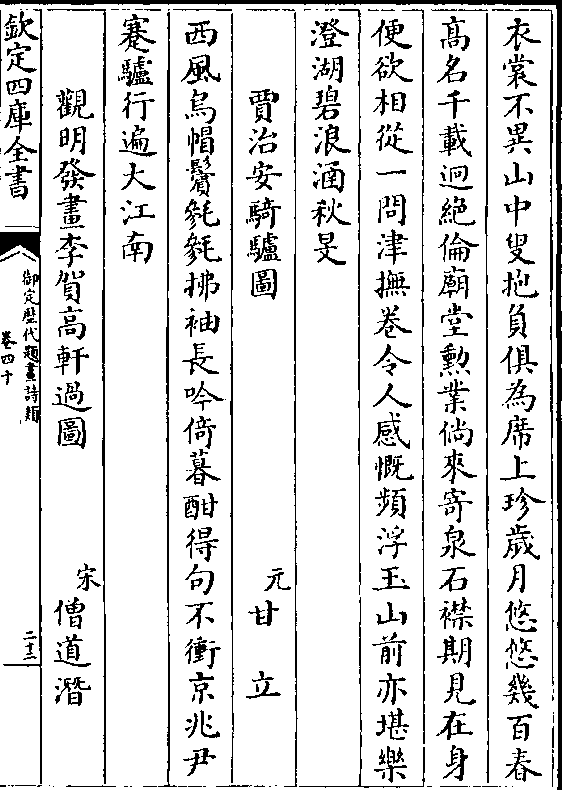 衣裳不異山中叟抱負俱為席上珍歲月悠悠幾百春
高名千載迥絶倫廟堂勲業倘來寄泉石襟期見在身
便欲相從一問津撫卷令人感慨頻浮玉山前亦堪樂
澄湖碧浪涵秋旻
賈治安騎驢圖
元甘立
西風烏帽鬢毿毿拂袖長吟倚暮酣得句不衝京兆尹
蹇驢行遍大江南
觀明發畫李賀高軒過圖
宋僧道潛
欽定四庫全書
御定歴代題畫詩類
卷四十
二十三